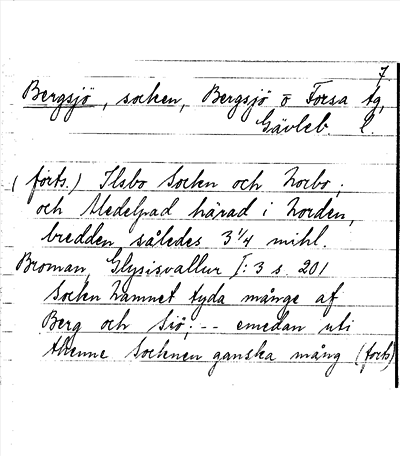 7.
Bergsjö, socken, Bergsjö o Forsa tg,
Gävleb. l.
(forts.) Ilsbo Socken och Norbo;
och Medelpad härad i Norden,
bredden således 3 1/4 mihl.
Broman, Glysisvallur I: 3 s. 201
Socken Namnet tyda månge af
Berg och Siö; -- emedan uti
thenne Socknen ganska mång (forts)